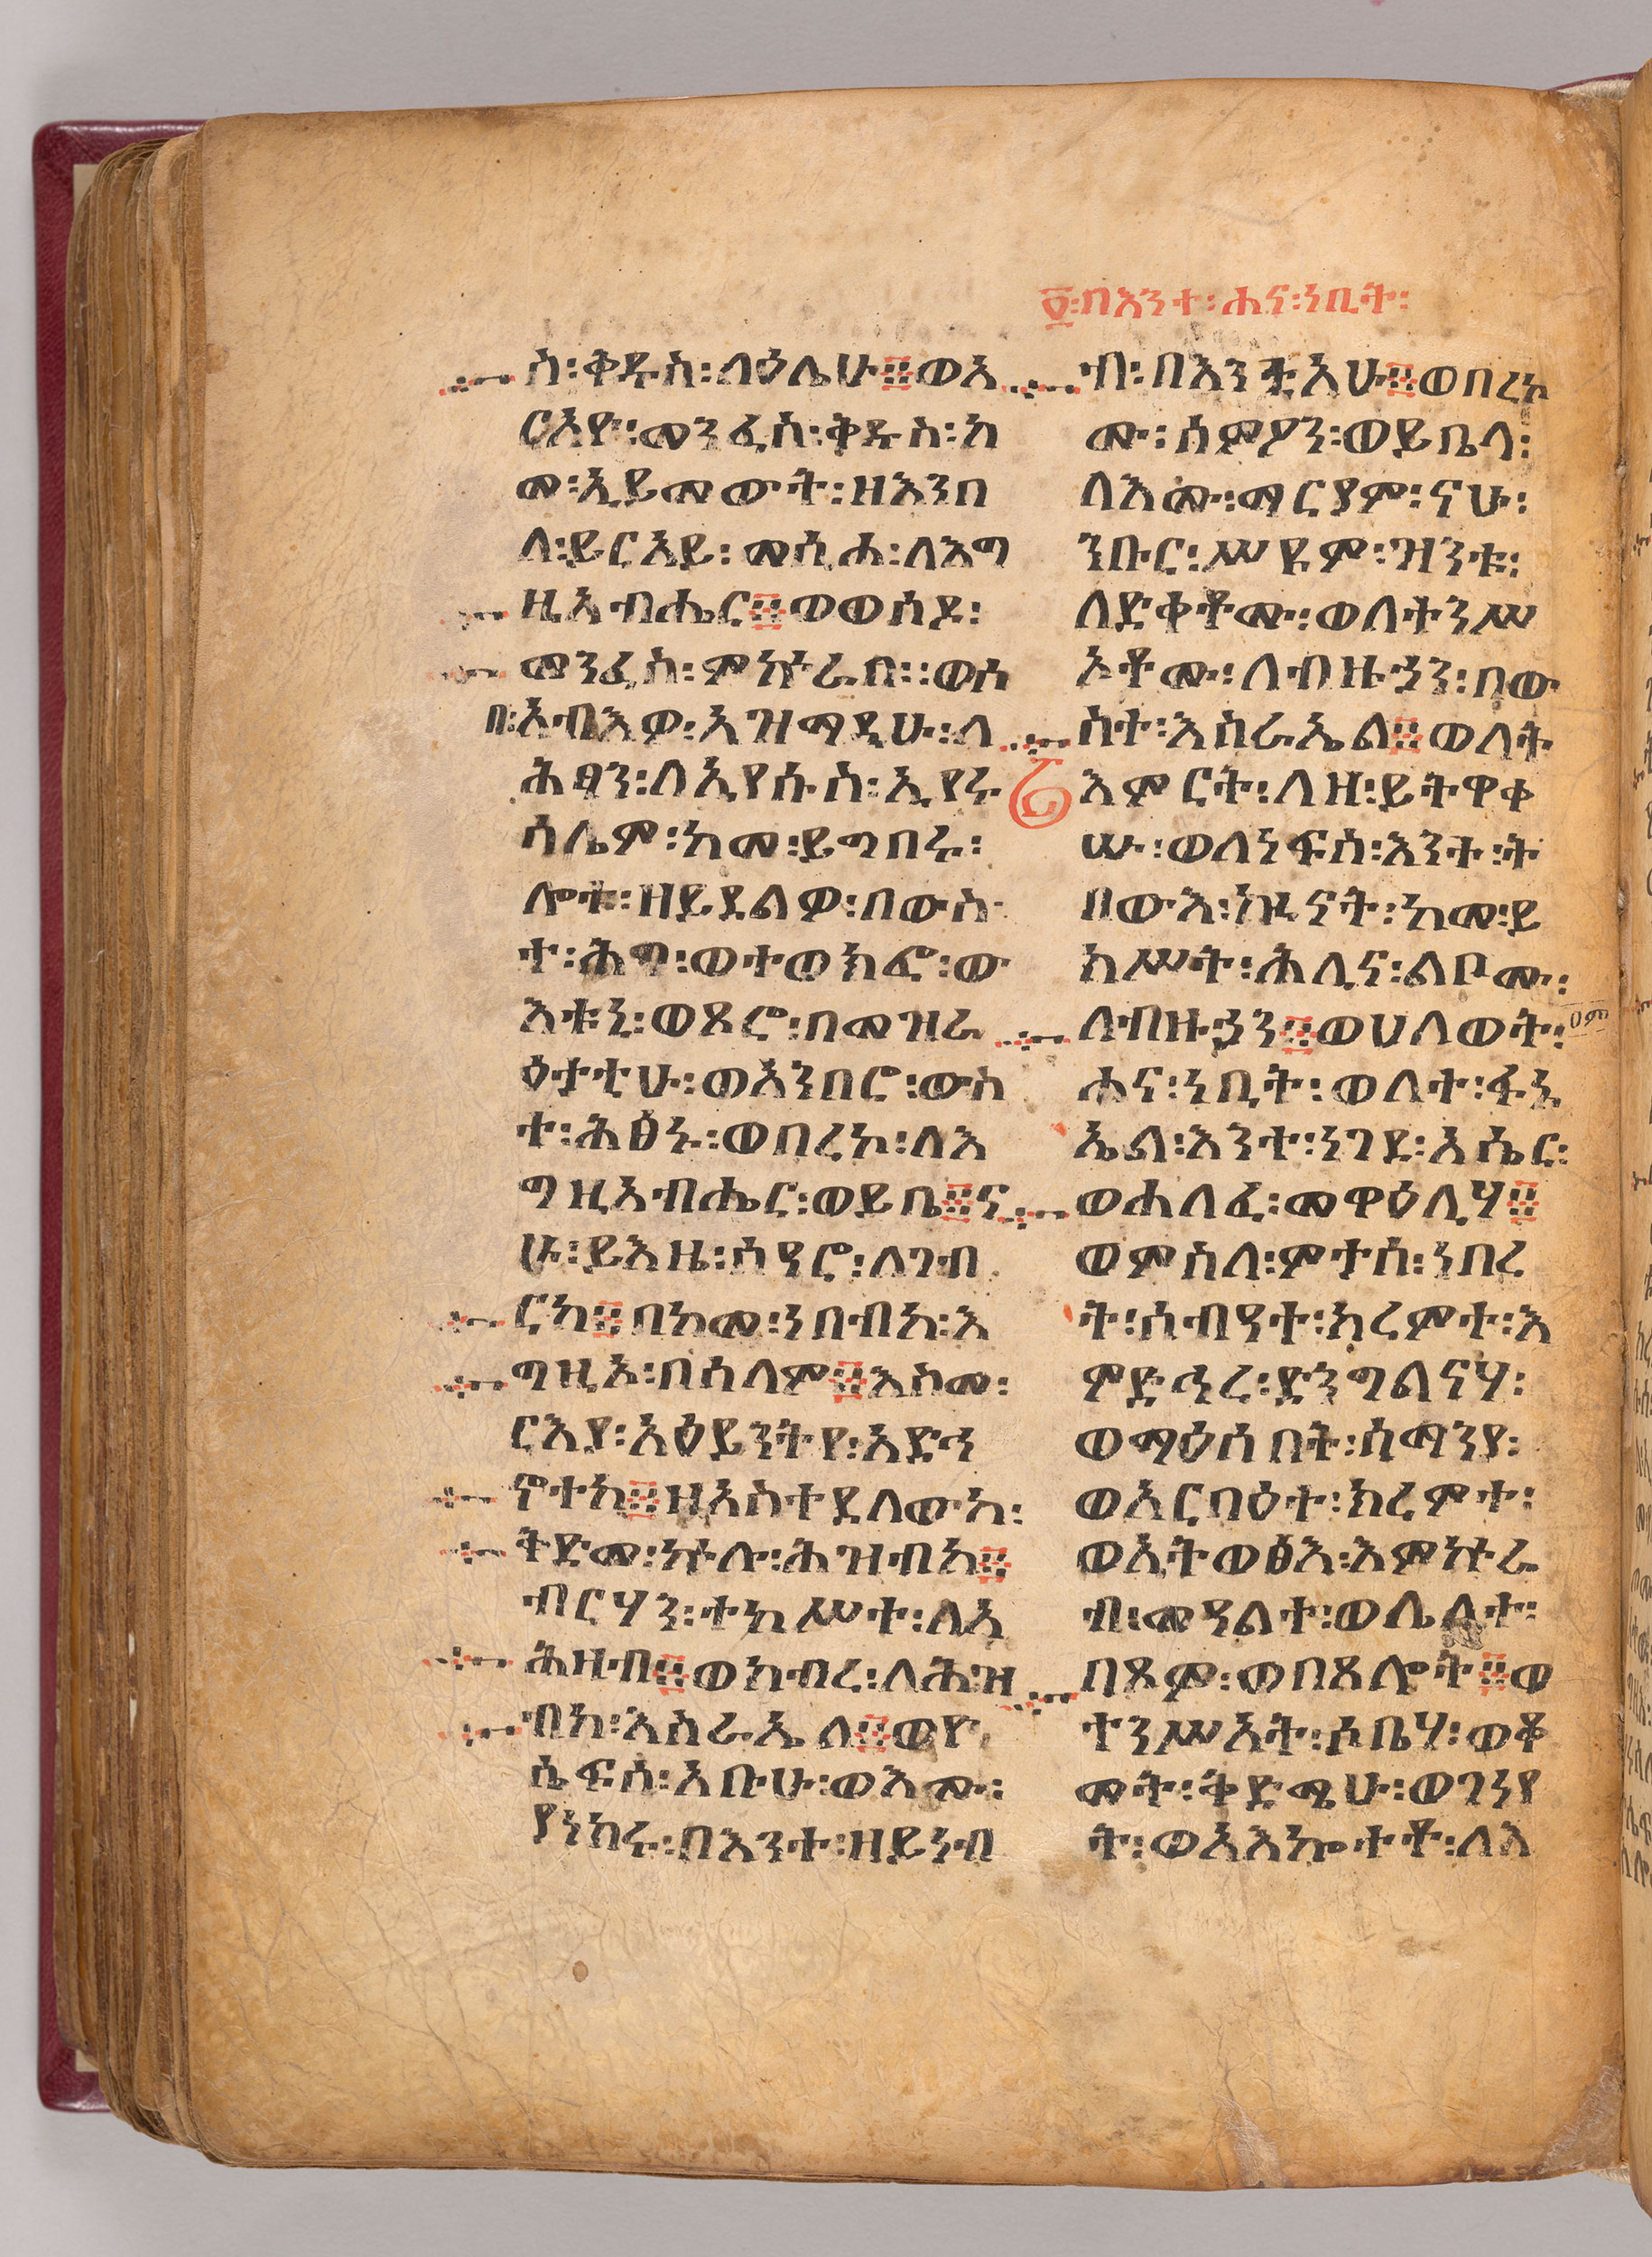 ፬፡በእንተ፡ሐና፡ነቢት፡
ስ፡ቅዱስ፡ላዕሌሁ፨ወአ
ርአዮ፡መንፈስ፡ቅዱስ፡ከ
መ፡ኢይመውት፡ዘእንበ
ለ፡ይርአይ፡መሲሐ፡ለእግ
ዚአብሔር፨ወወሰዶ፡
መንፈስ፡ምኵራበ፡፡ወሶ
በ፡አብእዎ፡አዝማዲሁ፡ለ
ሕፃን፡ለኢየሱስ፡ኢየሩ
ሳሌም፡ከመ፡ይግበሩ፡
ሎቱ፡ዘይደልዎ፡በውስ
ተ፡ሕግ፡ወተወክፎ፡ው
እቱኒ፡ወጾሮ፡በመዝራ
ዕታቲሁ፡ወአንበሮ፡ውስ
ተ፡ሕፅኑ፡ወባረኮ፡ለእ
ግዚአብሔር፡ወይቤ፨ና
ሁ፡ይእዜ፡ሰዓሮ፡ለገብ
ርከ፨በከመ፡ነበብከ፡እ
ግዚኦ፡በሰላም፨እስመ፡
ርእያ፡አዕይንትየ፡አድኅ
ኖተከ፨ዘአስተደለውከ፡
ቅድመ፡ኵሉ፡ሕዝብከ፨
ብርሃን፡ተከሥተ፡ለአ
ሕዛብ፨ወክብረ፡ለሕዝ
ብከ፡እስራኤል፨ወዮ
ሴፍሰ፡አቡሁ፡ወእሙ፡
ያነክሩ፡በእንተ፡ዘይነብ
ብ፡በእንቲአሁ፨ወባረኮ
ሙ፡ስምዖን፡ወይቤላ፡
ለእሙ፡ማርያም፡ናሁ፡
ንቡር፡ሥዩም፡ዝንቱ፡
ለድቀቶሙ፡ወለትንሥ
ኦቶሙ፡ለብዙኃን፡በው
ስተ፡እስራኤል፨ወለት
እምርት፡ለዘ፡ይትዋቀ
ሡ፡ወለነፍሰ፡እንተ፡ት
በውእ፡ኵናት፡ከመ፡ይ
ከሥት፡ሕሊና፡ልቦሙ፡
ለብዙኃን፨ወሀለወት፡
ሐና፡ነቢት፡ወለተ፡ፋኑ
ኤል፡እንተ፡ነገደ፡አሴር፡
ወሐለፈ፡መዋዕሊሃ፨
ወምስለ፡ምተሰ፡ነበረ
ት፡ሰብዓተ፡ክረምተ፡እ
ምድኅረ፡ድንግልናሃ፡
ወማዕሰበት፡ሰማንያ፡
ወአርባዕተ፡ክረምተ፡
ወኢትወፅእ፡እምኵራ
ብ፡መዓልተ፡ወሌሊተ፡
በጾም፡ወበጸሎት፨ወ
ተንሥአት፡ሶቤሃ፡ወቆ
መት፡ቅድሜሁ፡ወገነየ
ት፡ወአእኰተቶ፡ለእ